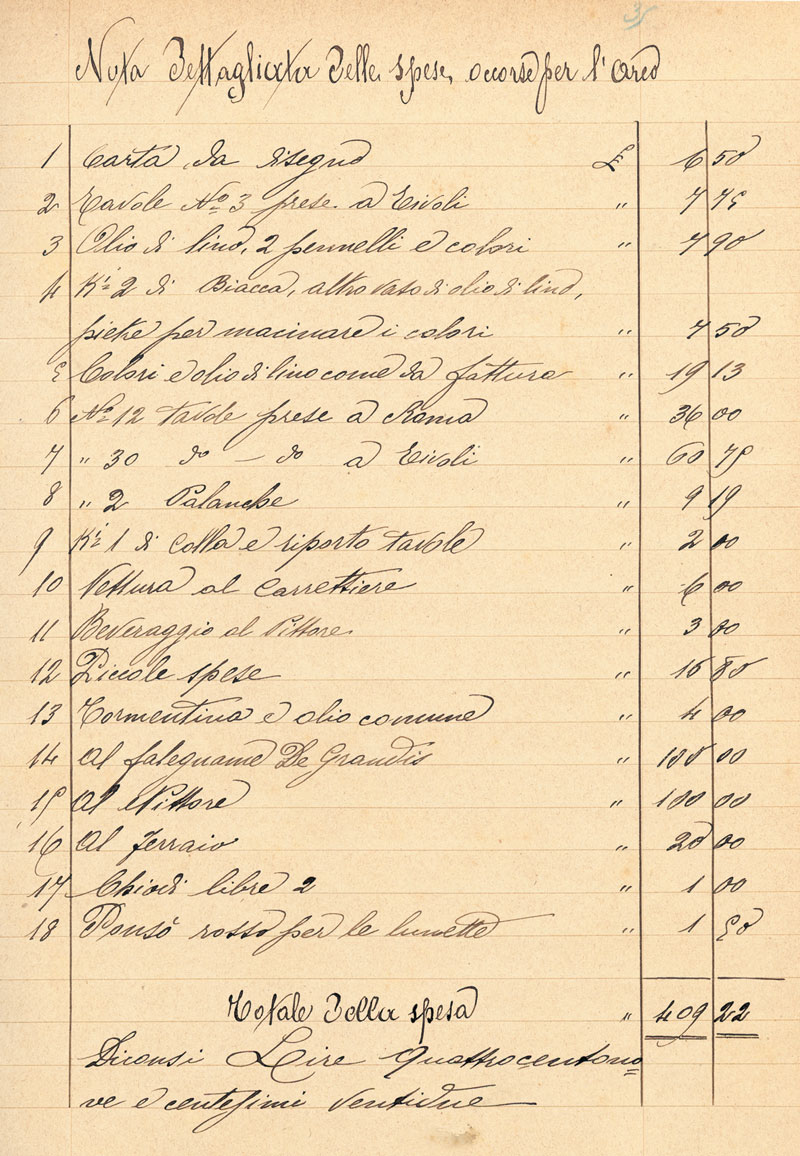 35
Nota Dettagliata delle spese occorse per l'Arco
1 Carta da disegno £ 6 50
2 Tavole No 3 prese a Tivoli " 7 75
3 Olio di lino, 2 pennelli e colori " 7 90
4 Ki 2 di Biacca, altro vaso di olio di lino,
pietre per macinare i colori " 7 50
5 Colori e olio di lino come da fattura " 19 13
6 No 12 tavole prese a Roma " 36 00
7 " 30 do – do a Tivoli " 60 75
8 " 2 Palanche " 9 19
9 Ki 1 di colla e riporto tavole " 2 00
10 Vettura al Carrettiere " 6 00
11 Beveraggio al Pittore " 3 00
12 Piccole spese " 16 80
13 Tormentina e olio comune " 4 00
14 Al falegname De Grandis " 100 00
15 Al Pittore " 100 00
16 Al Ferraio " 20 00
17 Chiodi libre 2 " 1 00
18 Ponsò rosso per le lunette " 1 50
Totale della spesa " 409 22
Diconsi Lire Quattrocentono=
ve e centesimi Ventidue